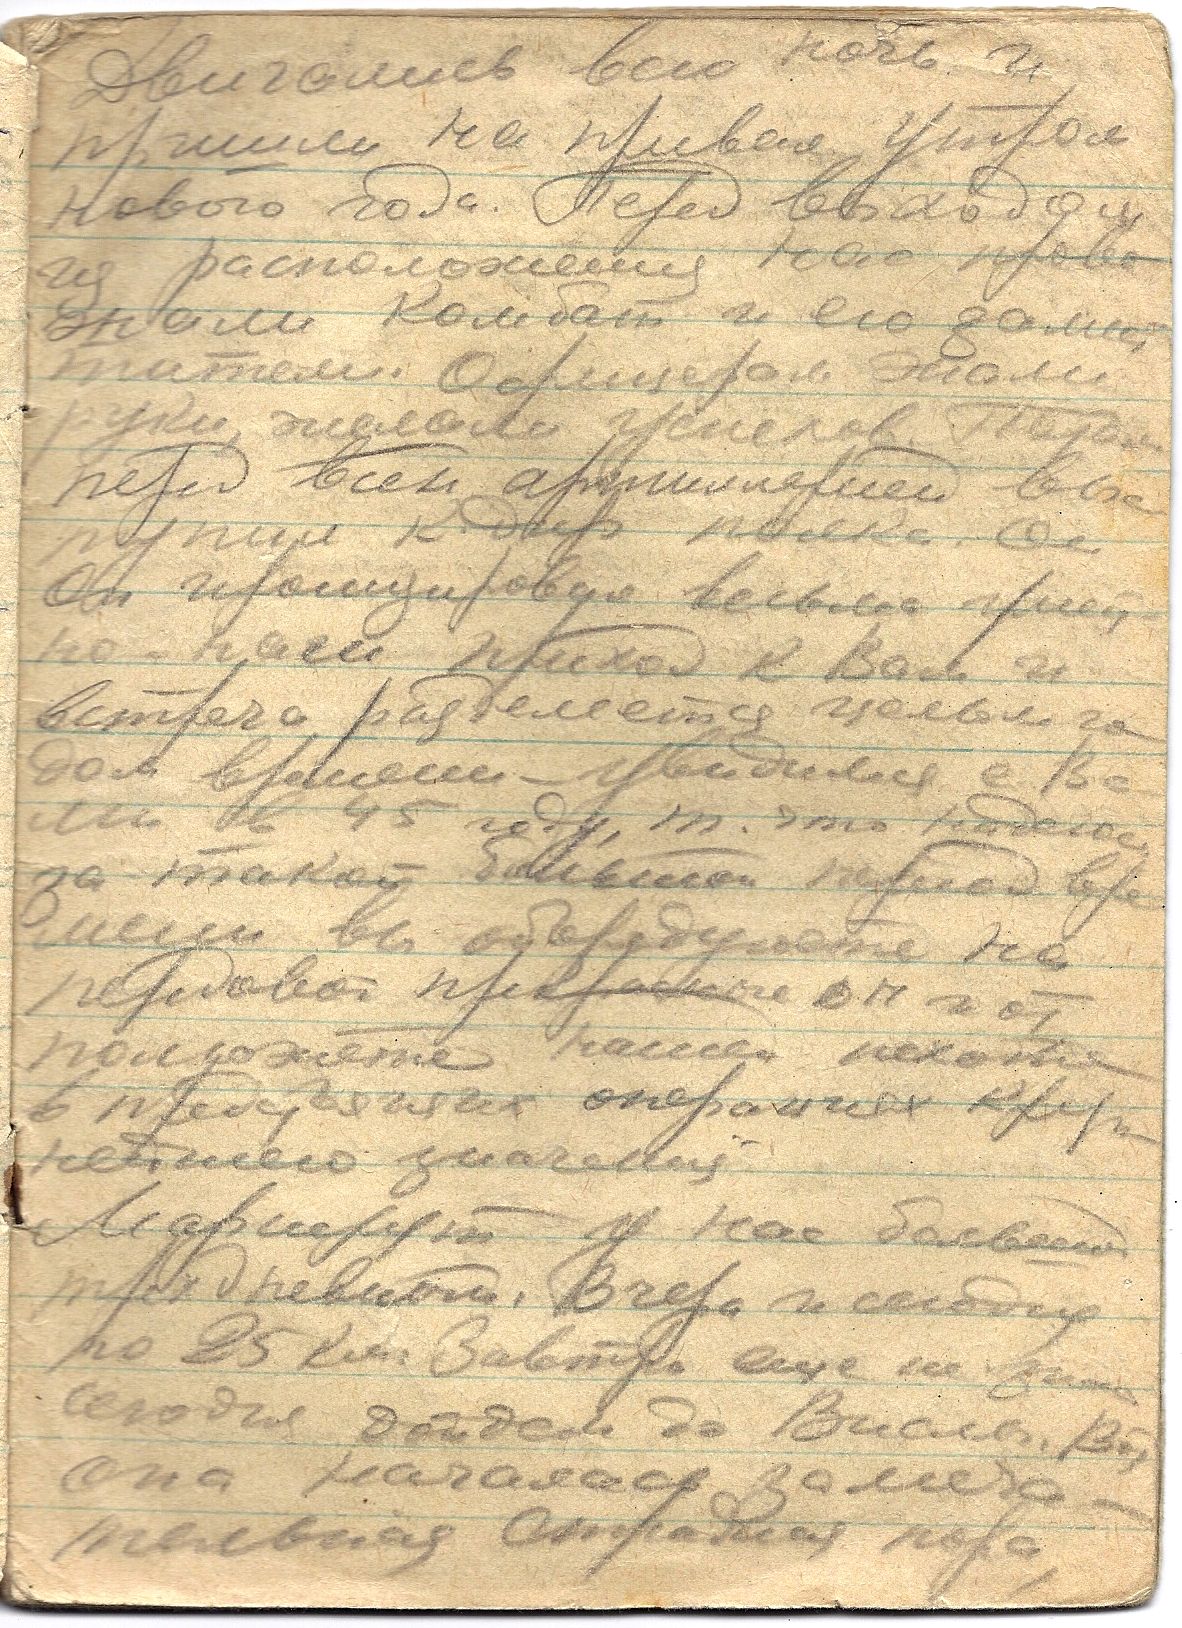 Двигались всю ночь и
пришли на привал утром
нового года. Перед выходом
из расположения нас прово
жали Комбат и его замес
тители. Офицерам жали
руки, желали успехов. Потом
перед всей артиллерией выс
тупил к-дир полка. Он
Он иронизировал весьма прият
но - наш приход к Вам и
встреча разделяется целым го
дом времени - увидимся с Ва
ми в 45 году, т. что надеюсь
за такой большой период вре
мени вы оборудуете на
передовой прекрасные ОН и от
положете нашей пехоте
в предстоящих операциях круп
нейшего значения
Маршрут у нас большой
трехдневный. Вчера и сегодня
по 25 км. Завтра еще не
сегодня дойдем до Вислы. Вот
она началась замеча-
тельная отрадная пора,